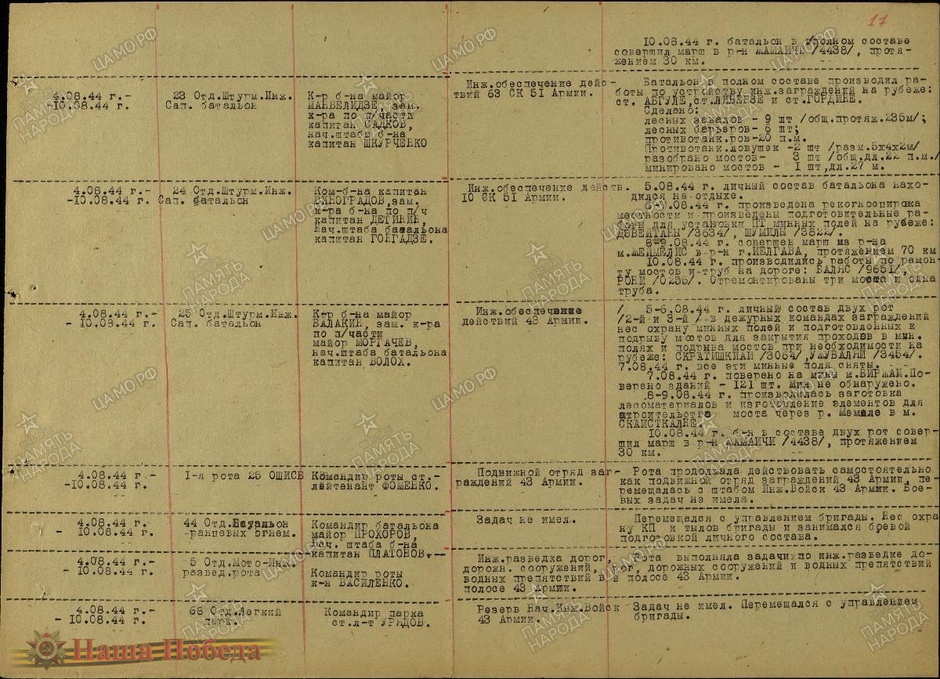 17
10.08.44 г. батальон в полном составе
совершил марш в р-н ЖАМАИЧИ /4438/, протя-
жением 30 км.
4.08.44 г.-
-10.08.44 г.
23 Отд.Штурм.Инж.
Сап. батальон
К-р б-на майор
МАНВЕЛИДЗЕ, зам.
к-ра по п/части
капитан САДКОВ,
нач.штаба б-на
капитан ШКУРЧЕНКО
Инж.обеспечение дейс-
твий 63 СК 51 Армии.
Батальон в полном составе производил ра-
боты по устройству инж.заграждений на рубеже:
ст. АБГУЛЕ,
Сделано:
лесных завалов - 9 шт /общ.протяж.235м/;
лесных барьеров- 6 шт;
противотанк.ров-20 п.м.
Противотанк.ловушек -2 шт /разм.5х4х2м/
разобрано мостов- 3 шт /общ.дл.22 п.м./
минировано мостов - 1 шт,дл.27 м.
4.08.44 г.-
-10.08.44 г.
24 Отд.Штурм.Инж.
Сап. батальон
Ком-б-на капитан
ВИНОГРАДОВ,зам.
к-ра б-на по п/ч
капитан
нач.штаба батальона
капитан ГОНГАДЗЕ.
Инж.обеспечение действ.
10 СК 51 Армии.
5.08.44 г. личный состав батальона нахо-
дился на отдыхе.
6-7.08.44 г. произведена рекогносцировка
местности и произведены подготовительные ра-
боты для установки ПТ минных полей на рубеже:
/3634/, ШУМИЛИ /3822/.
8-9.08.44 г. совершен марш из р-на
м.ЖЕЙМЕЛИС в р-н г.ИЕЛГАВА, протяжением 70 км
10.08.44 г. производились работы по ремон-
ту мостов и труб на дороге: /9651/,
/0256/. Отремонтированы три моста и одна
труба.
4.08.44 г.-
- 10.08.44 г.
25 Отд.Штурм.Инж.
Сап. батальон
К-р б-на майор
БАЛАКИН, зам. к-ра
по п/части
майор МОРГАЧЕВ,
нач.штаба батальона
капитан ВОЛОХ.
Инж.обеспечение
действий 43 Армии.
5-6.08.44 г. личный состав двух рот
/2-й и 3-й/ в дежурных командах заграждений
нес охрану минных полей и подготовленных к
подрыву мостов для закрытия проходов в мин.
полях и подрыва мостов при необходимости на
рубеже: СКРАТИШКИАИ /3054/, /3454/.
7.08.44 г. все эти минные поля сняты.
7.08.44 г. поверено на мины м.БИРЖАЙ.По-
верено зданий - 121 шт. Мин не обнаружено.
8-9.08.44 г. производилась заготовка
лесоматериалов и изготовление элементов для
строительства моста через р. Мемеле в м.
СКАЙСТКАЛНЕ.
10.08.44 г. б-н в составе двух рот совер-
шил марш в р-н ЖАМАИЧИ /4438/, протяжением
30 км.
4.08.44 г.-
-10.08.44 г.
1-я рота 25 ОШИСБ
Командир роты ст.-
лейтенант ФОМЕНКО.
Подвижной отряд заг-
раждений 43 Армии.
Рота продолжала действовать самостоятельно
как подвижной отряд заграждений 43 Армии, пе-
ремещалась с штабом Инж.Войск 43 Армии. Бое-
вых задач не имела.
4.08.44 г.-
- 10.08.44 г.
44 Отд.Батальон
ранцевых огнем.
Командир батальона
майор ПРОХОРОВ,
нач. штаба б-на
капитан ПЛАТОНОВ.
Задач не имел.
Перемещался с управлением бригады. Нес охра-
ну КП и тылов бригады и занимался боевой
подготовкой личного состава.
4.08.44 г.-
- 10.08.44 г.
5 Отд.Мото-Инж.
развед.рота
Командир роты
к-н ВАСИЛЕНКО.
Инж.разведка дорог,
дорожн. сооружений,
водных препятствий в
полосе 43 Армии.
Рота выполняла задачи по инж.разведке до-
рог, дорожных сооружений и водных препятствий
в полосе 43 Армии.
4.08.44 г.-
- 10.08.44 г.
68 Отд.Легкий
парк.
Командир парка
ст.л-т
Резерв Нач.Инж.Войск
43 Армии.
Задач не имел. Перемещался с управлением
бригады.
Наша Победа
ПАМЯТЬ НАРОДА
ЦАМО.РФ